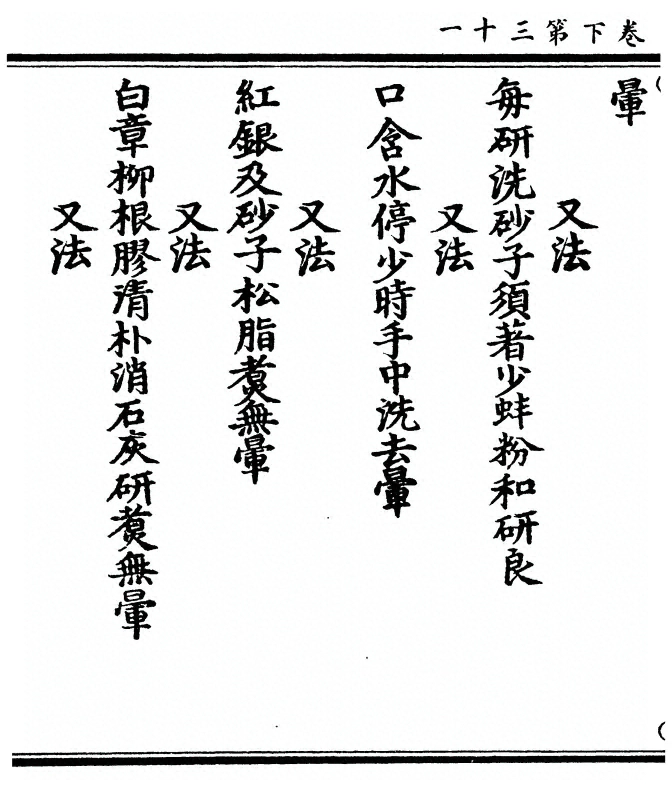 卷下第三十一
暈
又法
每研洗砂子須著少蚌粉和研良
又法
口含水停少時手中洗去暈
又法
紅銀及砂子松脂煑無暈
又法
白章柳根膠清朴消石灰研煑無暈
又法